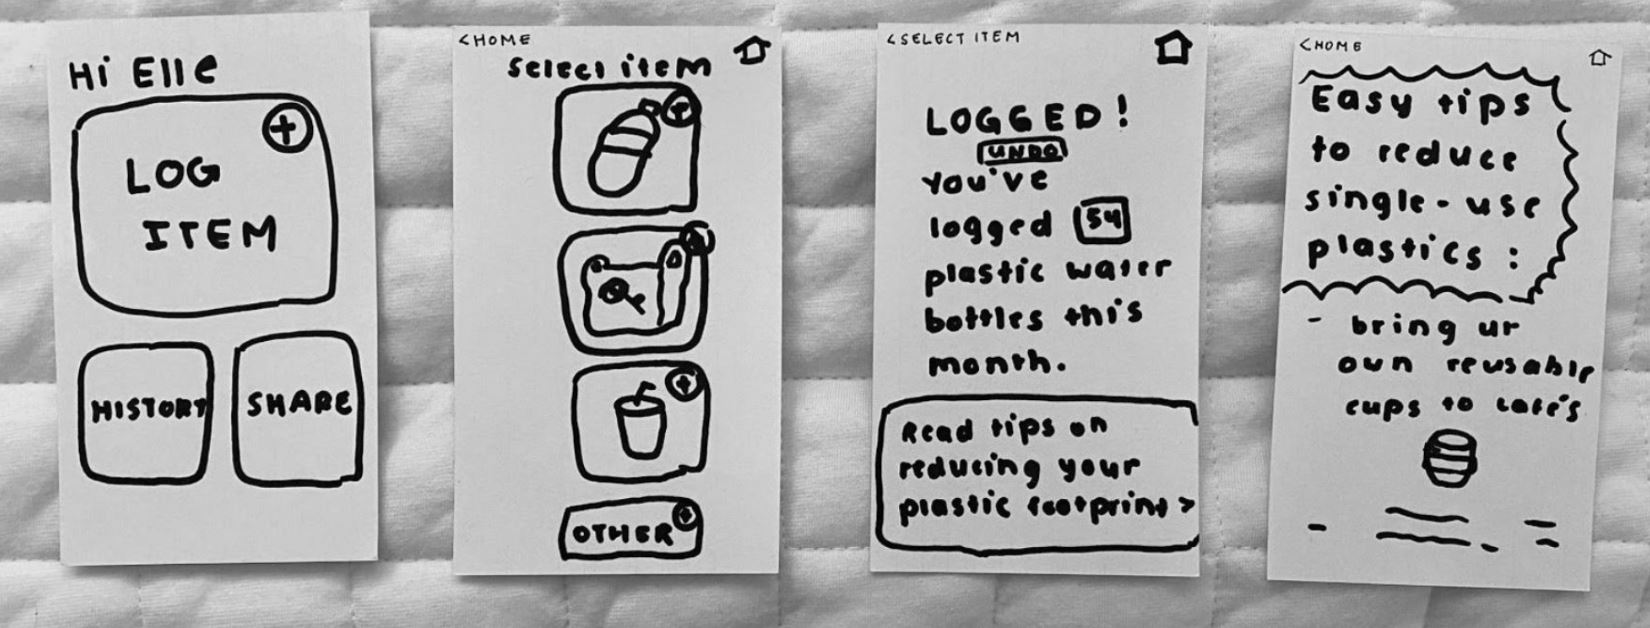 Hi Elle
+
LOG
ITEM
HISTORY
SHARE
<HOME
select item
+
+
OTHER +
<SELECT ITEM
LOGGED!
UNDO
You've
logged 54
plastic water
bottles this
month.
Read tips on
reducing your
plastic footprint >
<HOME
Easy tips
to reduce
single-use
plastics:
- bring ur
own reusable
cups to cafe's